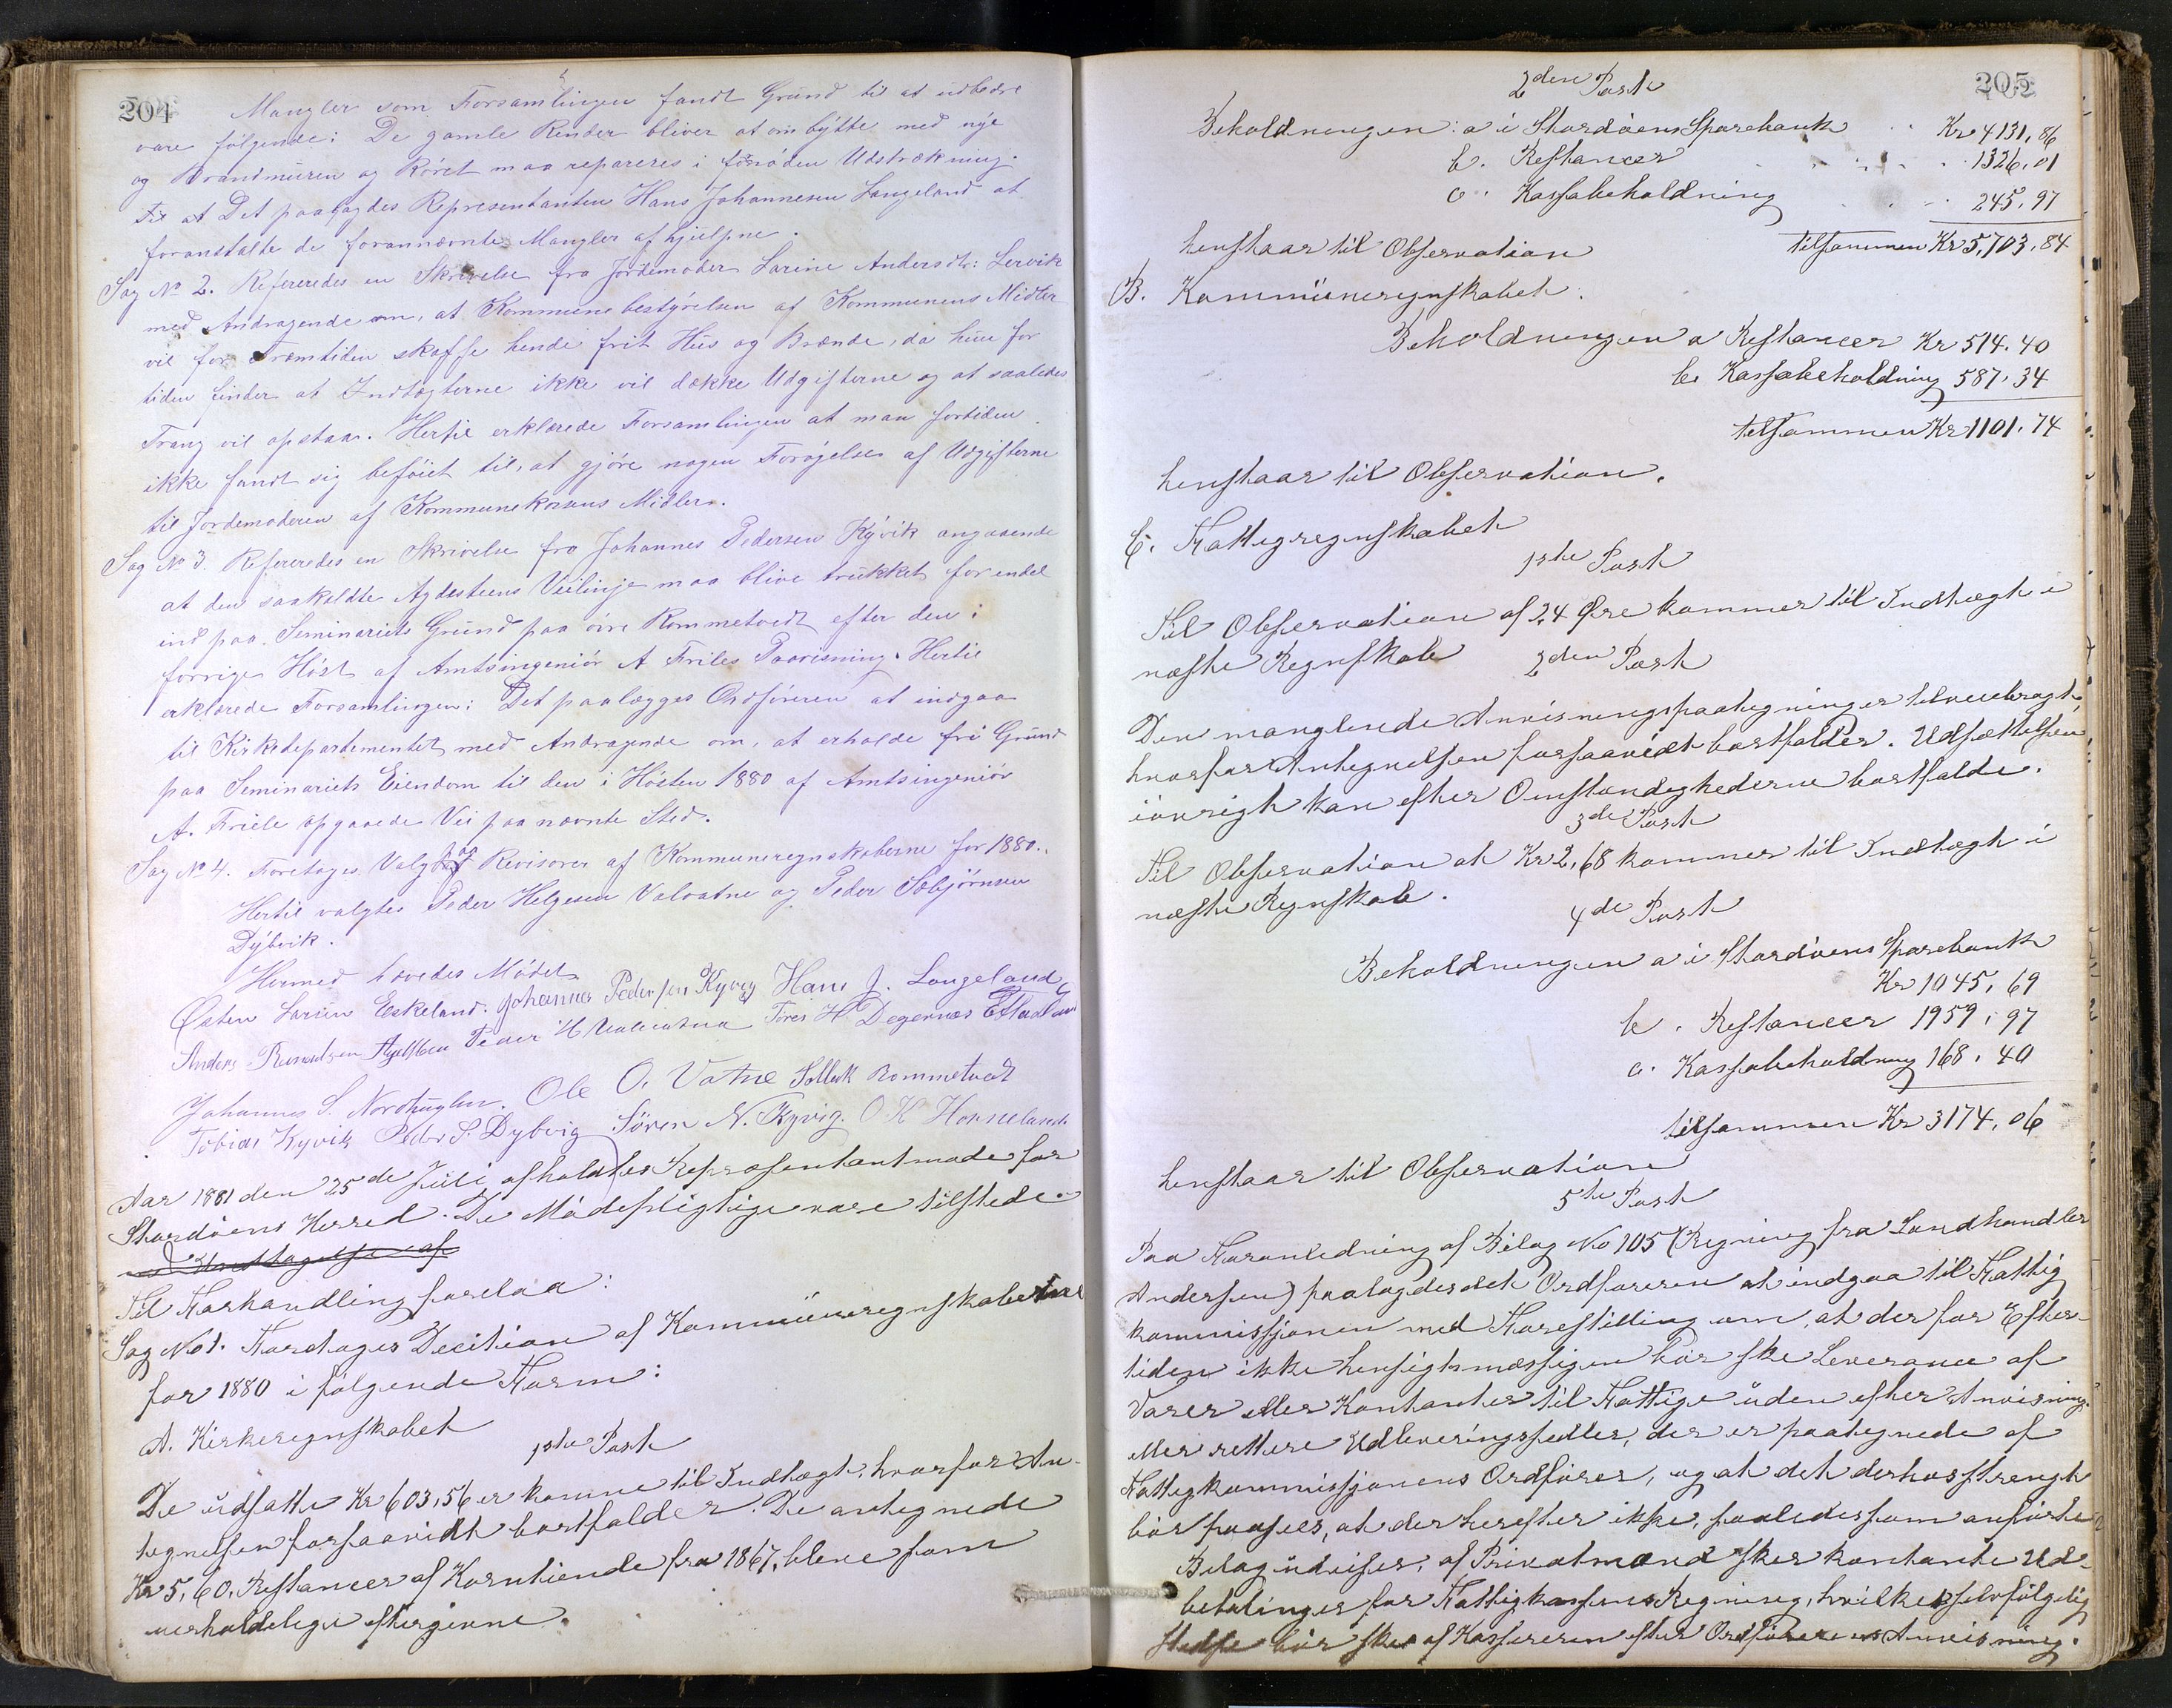 204
Mangler som Forsamlingen fandt Grund til at udbedre
vare følgende: De gamle Rinder bliver at ombytte med nye
og Brandmuren og Røret maa repareres i fornøden Udstrækning.
Det paalagdes Representanten Hans Johannesen Langeland at
foranstalte de forannævnte Mangler afhjulpne.
Sag No 2. Refereredes en Skrivelse fra Jordemoder Larine Andersdtr: Lervik
med Andragende om, at Kommunebestyrelsen af Kommunens Midler
vil for Fremtiden skaffe hende frit Hus og Brænde, da hun for
tiden finder at Indtægterne ikke vil dække Udgifterne og at saaledes
Trang vil opstaa. Hertil erklærede Forsamlingen at man fortiden
ikke fandt sig beføiet til, at gjøre nogen Forøgelse af Udgifterne
til Jordemoderen af Kommunekassens Midler.
Sag No 3. Refereredes en Skrivelse fra Johannes Pedersen Kyvik angaaende
at den saakaldte Agdesteens Veilinje maa blive trukket for endel
ind paa Seminariets Grund paa øvre Rommetvedt efter den i
forrige Høst af Amtsingeniør A Friles Paavisning. Hertil
erklærede Forsamlingen: Det paalægges Ordføreren at indgaa
til Kirkedepartementet med Andragende om, at erholde fri Grund
paa Seminariets Eiendom til den i Høsten 1880 af Amtsingeniør
A. Friele opgaaede Vei paa nævnte Sted.
Sag No 4. Foretages Valg af Revisorer af Kommuneregnskaberne for 1880.
Hertil valgtes Peder Helgesen Valvatne og Peder Sæbjørnsen
Dybvik.
Hermed hævedes Mødet
Østen Larsen Eskeland. Johannes Pedersen Kyvig Hans J. Langeland
Anders Peder H Valvatna Tores H Degernæs
Johannes S. Nordhuglen. Ole O. Vatne Sellek Rommetvedt
Tobias Kyvik Peder S. Dybvig Søren N. Kyvig. O K Horneland
Aar 1881 den 25de Juli afholdtes Repræsentantmøde for
Stordøens Herred. De Mødepligtige vare tilstede
med Undtagelse af
Til Forhandling forelaa:
Sag No 1. Foretoges Decition af Kommuneregnskaberne
for 1880 i følgende Form:
A. Kirkeregnskabet
1ste Post
De udsatte Kr 603,56 er komne til Indtægt, hvorfor An-
tegnelsen forsaavidt bortfalder. De antegnede
Kr 5,60. Restancer af Korntiende fra 1867, bleve som
uerholdelige eftergivne.
205
2den Post
Beholdningen: a i Stordøens Sparebank Kr 4131,86
b. Restancer 1326,01
c. Kassabeholdning 245,97
henstaar til Observation tilsammen Kr 5,703,84
B. Kommuneregnskabet.
Beholdningen a Restancer Kr 514.40
b. Kassabeholdning 587.34
tilsammen Kr 1101.74
henstaar til Observation.
C. Fattigregnskabet
1ste Post
Til Observation af 24 Øre kommer til Indtægt i
næste Regnskab
2den Post
Den manglende Anvisningspaategning er tilveiebragt,
hvorfor Antegnelsen forsaavidt bortfalder. Udsættelsen
iøvrigt kan efter Omstændighederne bortfalde.
3de Post
Til Observation at Kr 2,68 kommer til Indtægt i
næste Regnskab.
4de Post
Beholdningen a i Stordøens Sparebank
Kr 1045,69
b. Restancer 1959,97
c. Kassabeholdning 168.40
tilsammen Kr 3174,06
henstaar til Observation
5te Post
Paa Foranledning af Bilag No 105 (Regning fra Landhandler
Andersen) paalagdes det Ordføreren at indgaa til Fattig
kommissjonen med Forestilling om, at der for Efter-
tiden ikke hensigtsmæssigen bør ske Leverance af
Varer eller Kontanter til Fattige uden efter Anvisning
eller rettere Udleveringssedler, der er paategnede af
Fattigkommissjonens Ordfører, og at det derhos strengt
bør paasees, at der herefter ikke, saaledes som anførte
Bilag udviser, af Privatmænd sker kontante Ud-
betalinger for Fattigkassens Regning, hvilke selvfølgelig
stedse bør ske af Kassereren efter Ordførerens Anvisning.